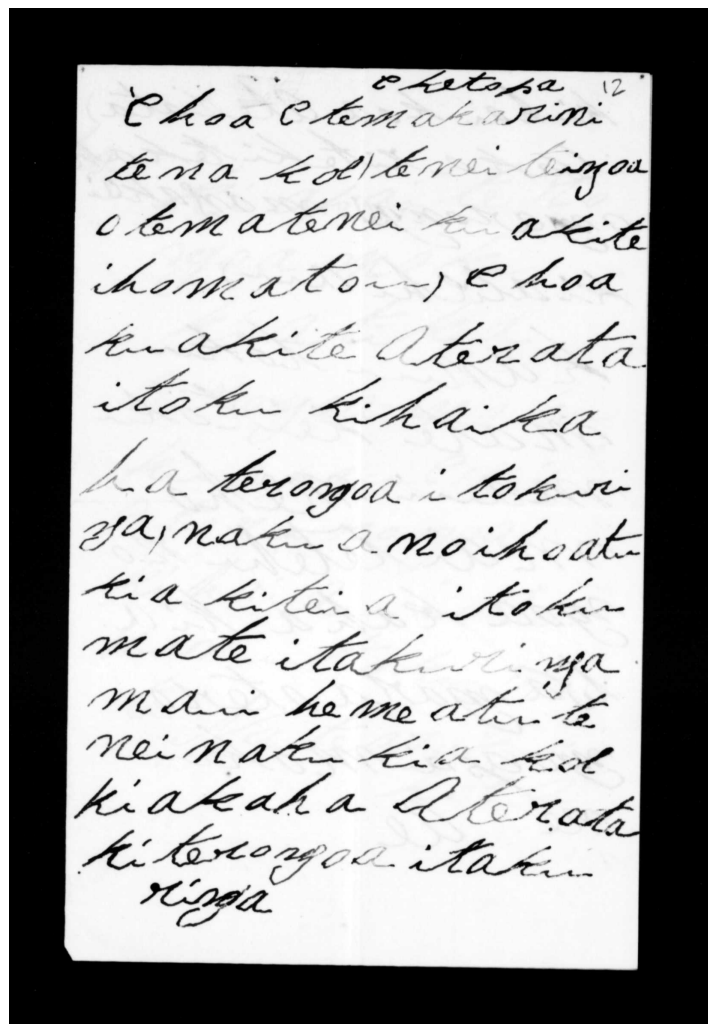 e hetopa 12
E hoa E temakarini
te na koe) te nei teingoa
o tematenei ku akite
ihomatou, E hoa
ku akite Aterata
itoku kihaika
ha terongoa i tokuri
nga, naku a noihoatu
kia kiteia itoku
mate itakuringa
maui he me atu te
nei naku kia koe
kiakaha Aterata
kiterongoa itaku
ringa